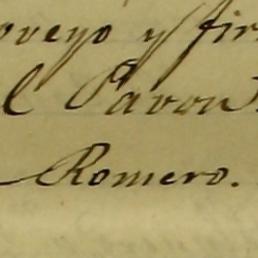 oveyo y fir
l Pavon
Romero.